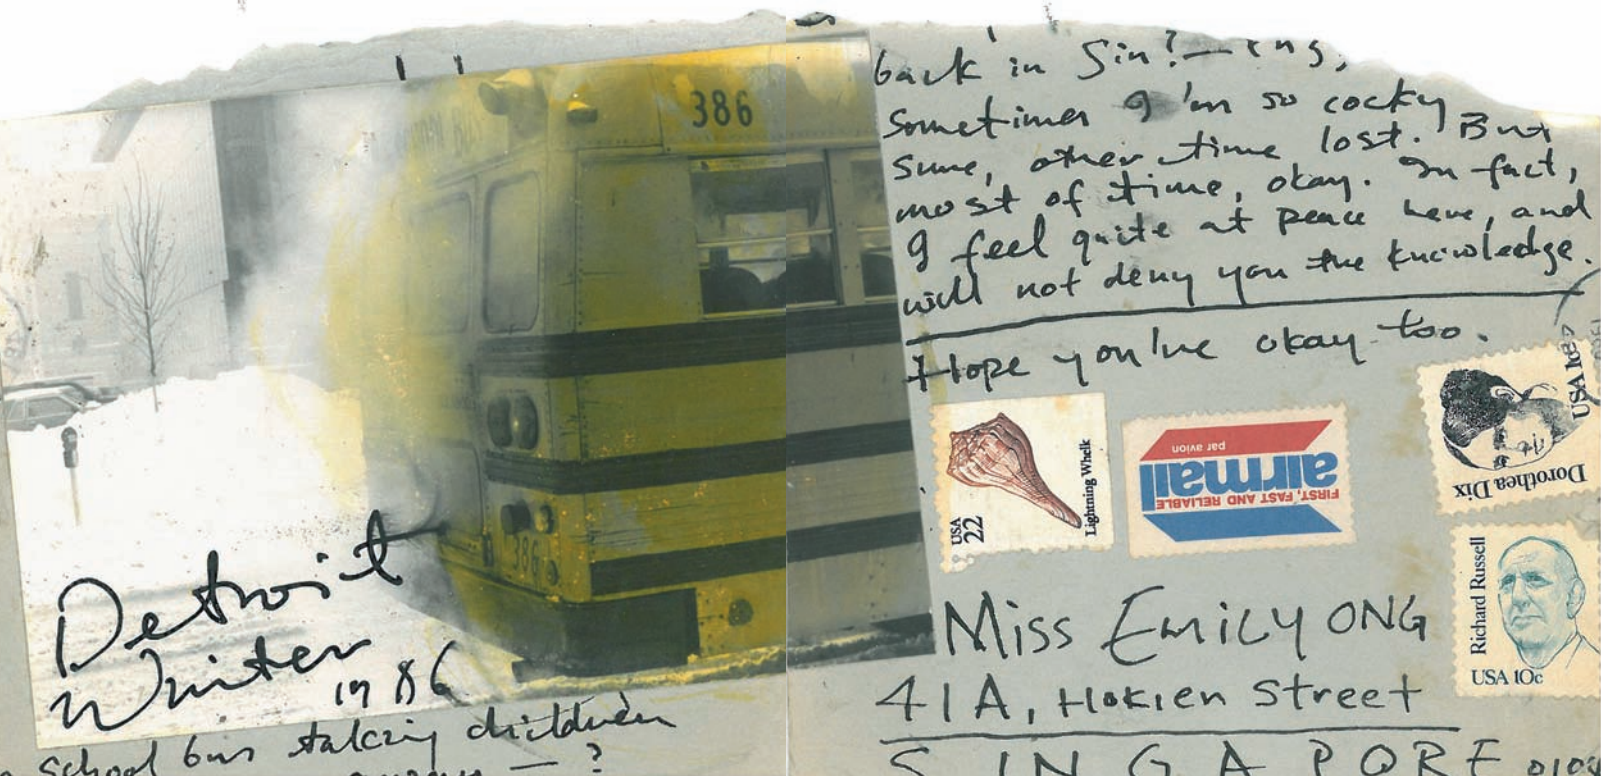 386
386
Detroit
Winter
1986
school bus taking children
— ?
back in Sin? —
sometimes I'm so cocky
sure, other time lost. But
most of time, okay. In fact,
I feel quite at peace here, and
will not deny you the knowledge.
Hope you're okay too.
USA
22
Lightning Whelk
FIRST, FAST AND RELIABLE
airmail
par avion
Dorothea Dix
USA
Richard Russell
USA 10c
Miss Emily ONG
41A, Hokien Street
SINGAPORE